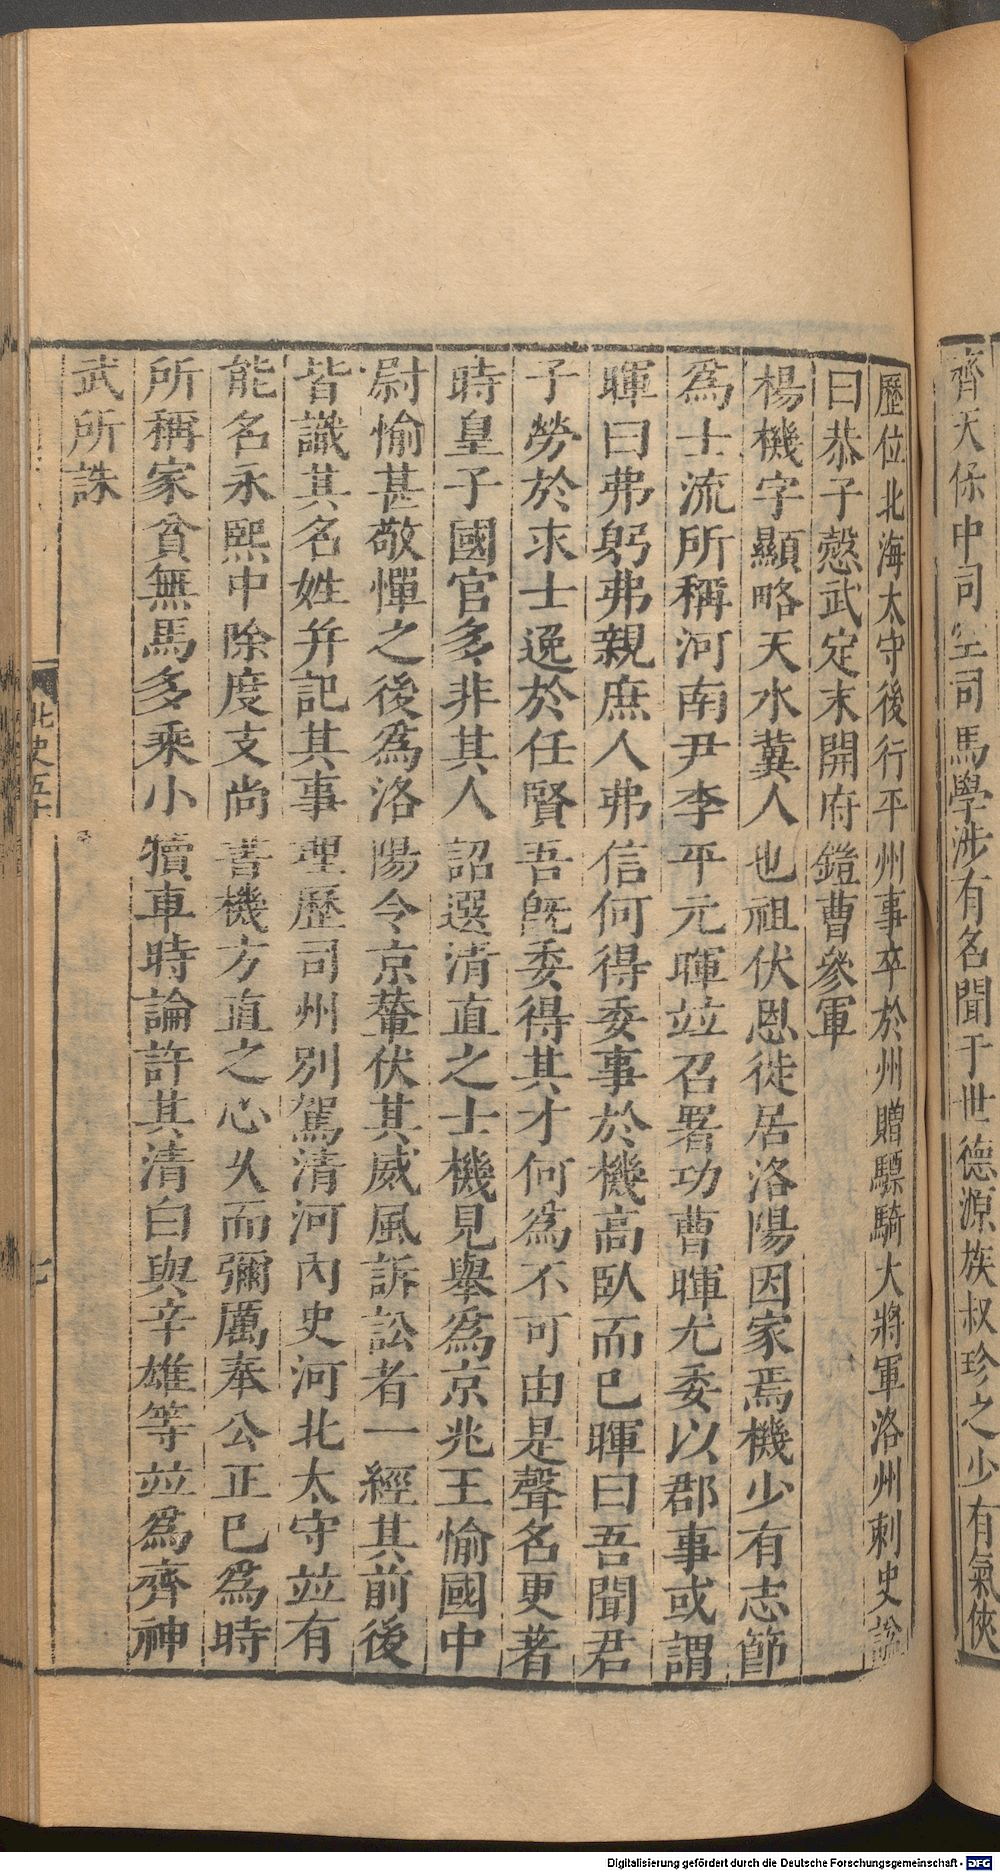 齊天保中司空司馬學涉有名聞于世德源族叔珍之少有氣俠
歷位北海太守後行平州事卒於州贈驃騎大將軍洛州刺史諡
曰恭子慤武定末開府鎧曹參軍
楊機字顯略天水冀人也祖伏恩徙居洛陽因家焉機少有志節
爲士流所稱河南尹李平元暉竝召署功曹暉尤委以郡事或謂
暉曰弗躬弗親庶人弗信何得委事於機高臥而已暉曰吾聞君
子勞於求士逸於任賢吾旣委得其才何爲不可由是聲名更著
時皇子國官多非其人詔選清直之士機見舉爲京兆王愉國中
尉愉甚敬憚之後爲洛陽令京輦伏其威風訴訟者一經其前後
皆識其名姓幷記其事理歷司州別駕清河內史河北太守竝有
能名永熙中除度支尚書機方直之心久而彌厲奉公正己爲時
所稱家貧無馬多乘小犢車時論許其清白與辛雄等竝爲齊神
武所誅
北史五十
七
Digitalisierung gefördert durch die Deutsche Forschungsgemeinschaft - DFG